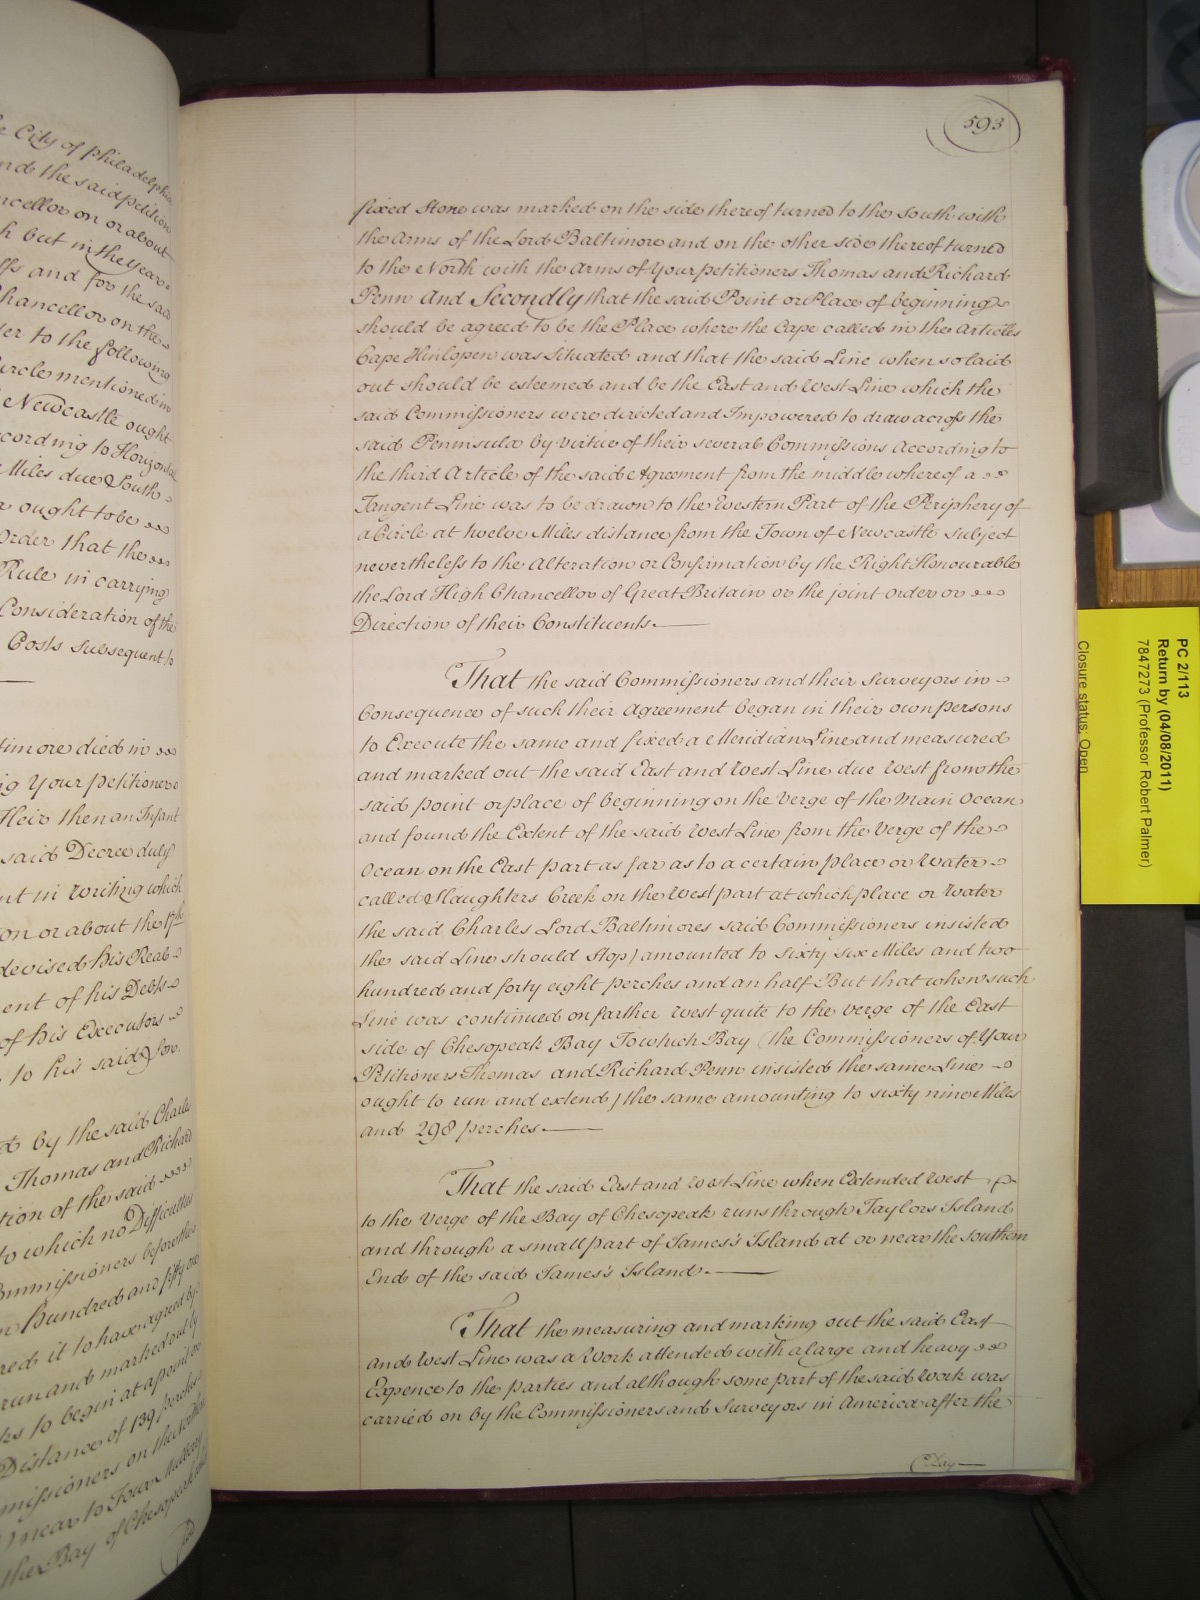 e City of Philadelphia
nd the said petition
ncellor on or about
h but in the year
lfs and for the said
Chancellor on the
er to the following
ircle mentioned in
Newcastle ought
ccording to Horizontal
Miles due South
ought to be
Order that the
Rule in carrying
Consideration of the
Costs subsequent to
timore died in
ng Your petitioners
Heir then an Infant
said Decree duly
nt in writing which
on or about the 17th
devised his Real
ent of his Debts
of his Executors
to his said Son
by the said Charles
Thomas and Richard
tion of the said
to which no Difficulties
ommissioners before the
n Hundred and fifty one
red it to have agreed by
run and marked out by
ks to begin at a point or
Distance of 139 perches
missioners on the
near to Four Mulberry
the Bay of Chesopeak
593
fixed Stone was marked on the side thereof turned to the South with
the Arms of the Lord Baltimore and on the other side thereof turned
to the North with the Arms of Your petitioners Thomas and Richard
Penn And Secondly that the said Point or Place of beginning
should be agreed to be the Place where the Cape called in the Articles
Cape Hinlopen was Situated and that the said Line when so laid
out should be esteemed and be the East and West Line which the
said Commissioners were directed and Impowered to draw across the
said Peninsula by virtue of their several Commissions According to
the third Article of the said Agreement from the middle whereof a
Tangent Line was to be drawn to the Western Part of the Periphery of
a Circle at twelve Miles distance from the Town of Newcastle subject
nevertheless to the Alteration or Confirmation by the Right Honourable
the Lord High Chancellor of Great Britain or the joint order or
Direction of their Constituents.
That the said Commissioners and their Surveyors in
Consequence of such their Agreement began in their own persons
to Execute the same and fixed a Meridian Line and measured
and marked out the said East and West Line due West from the
said point or place of beginning on the Verge of the Main Ocean
and found the Extent of the said West Line from the Verge of the
Ocean on the East part as far as to a certain place or Water
called Slaughters Creek on the West part at which place or Water
the said Charles Lord Baltimores said Commissioners insisted
the said Line should stop) amounted to sixty six Miles and two
hundred and forty eight perches and an half But that when such
Line was continued on farther West quite to the verge of the East
side of Chesopeak Bay To which Bay (the Commissioners of Your
Petitioners Thomas and Richard Penn insisted the same Line
ought to run and extend) the same amounting to sixty nine Miles
and 298 perches.
That the said East and West Line when Extended West
to the Verge of the Bay of Chesopeak runs through Taylors Island
and through a small part of James's Island at or near the Southern
End of the said James's Island.
That the measuring and marking out the said East
and West Line was a Work attended with a large and heavy
Expence to the parties and although some part of the said Work was
carried on by the Commissioners and Surveyors in America after the
Day
PC 2/113
Return by (04/08/2011)
7847273 (Professor Robert Palmer)
Closure status: Open